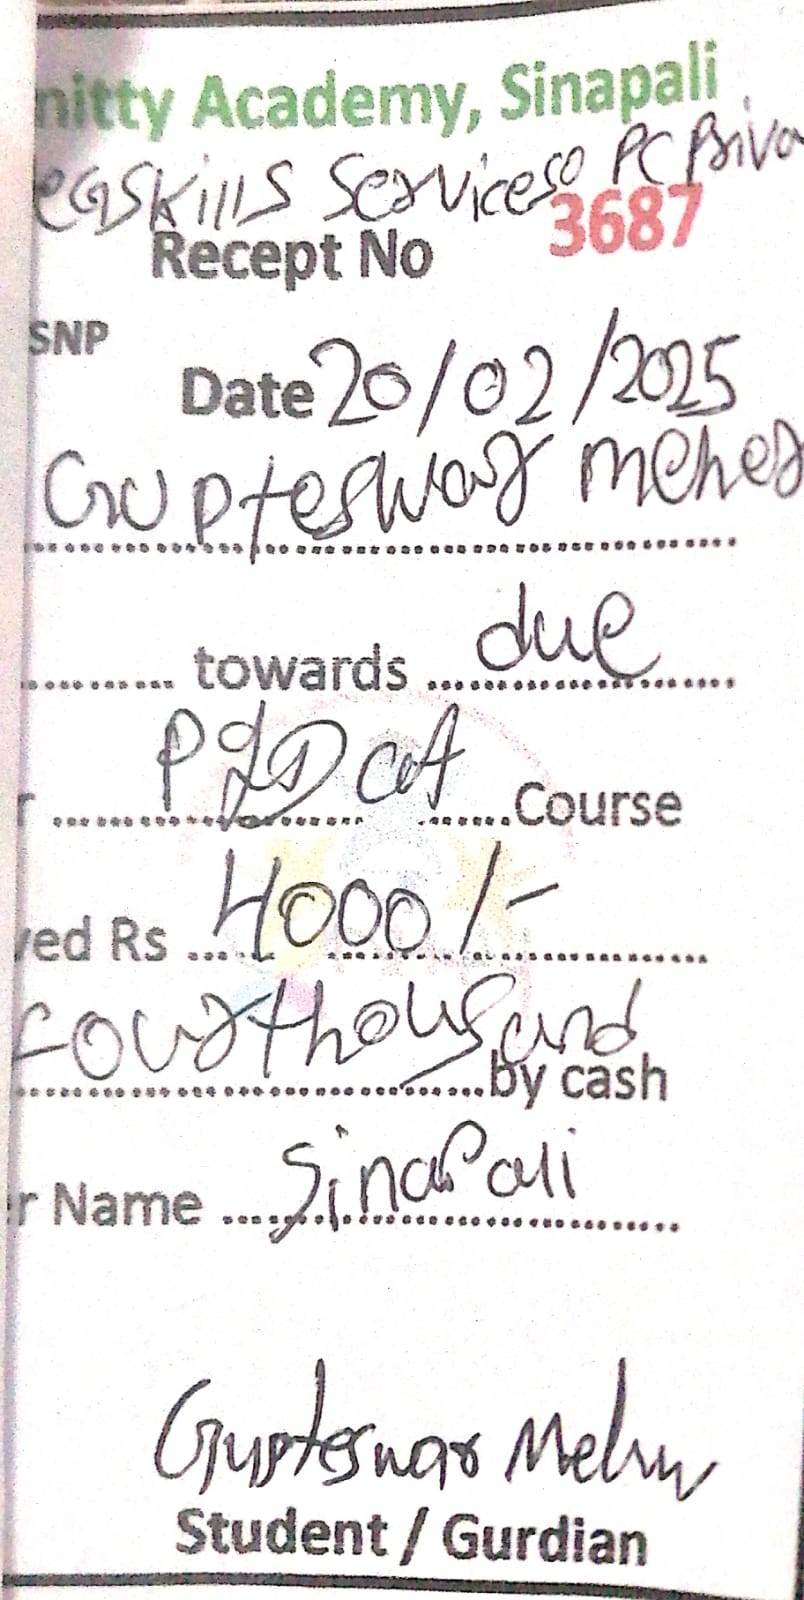 nitty Academy, Sinapali
eGSkills Services PC Priva
Recept No 3687
SNP
Date 20/02/2025
Gupteswar meher
.......... towards .. due
r .... PGDCA ......Course
ved Rs ... 4000/- ....
Fourthousand
....by cash
r Name .... Sinapali ....
Gupteswar Meher
Student / Gurdian